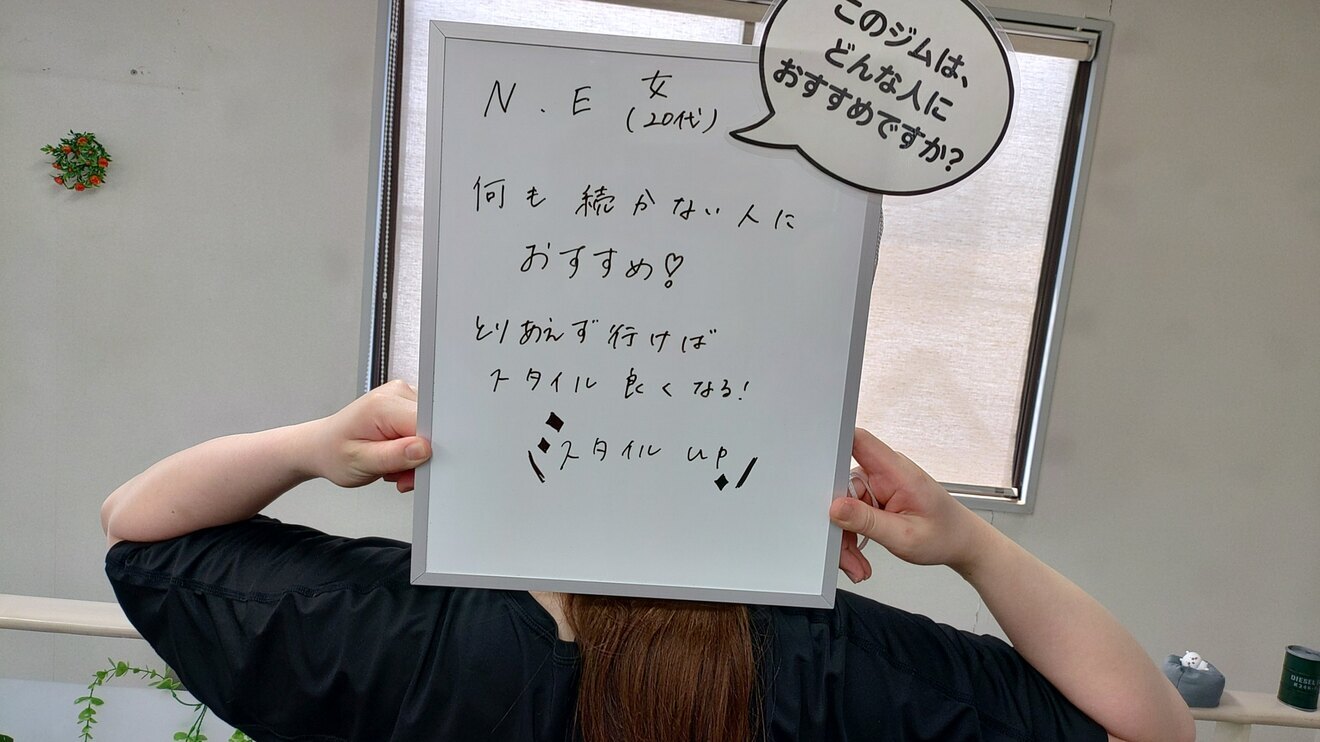 このジムは、
どんな人に
おすすめですか?
N.E 女
(20代)
何も続かない人に
おすすめ!
とりあえず行けば
スタイル良くなる!
スタイルup
DIESEL